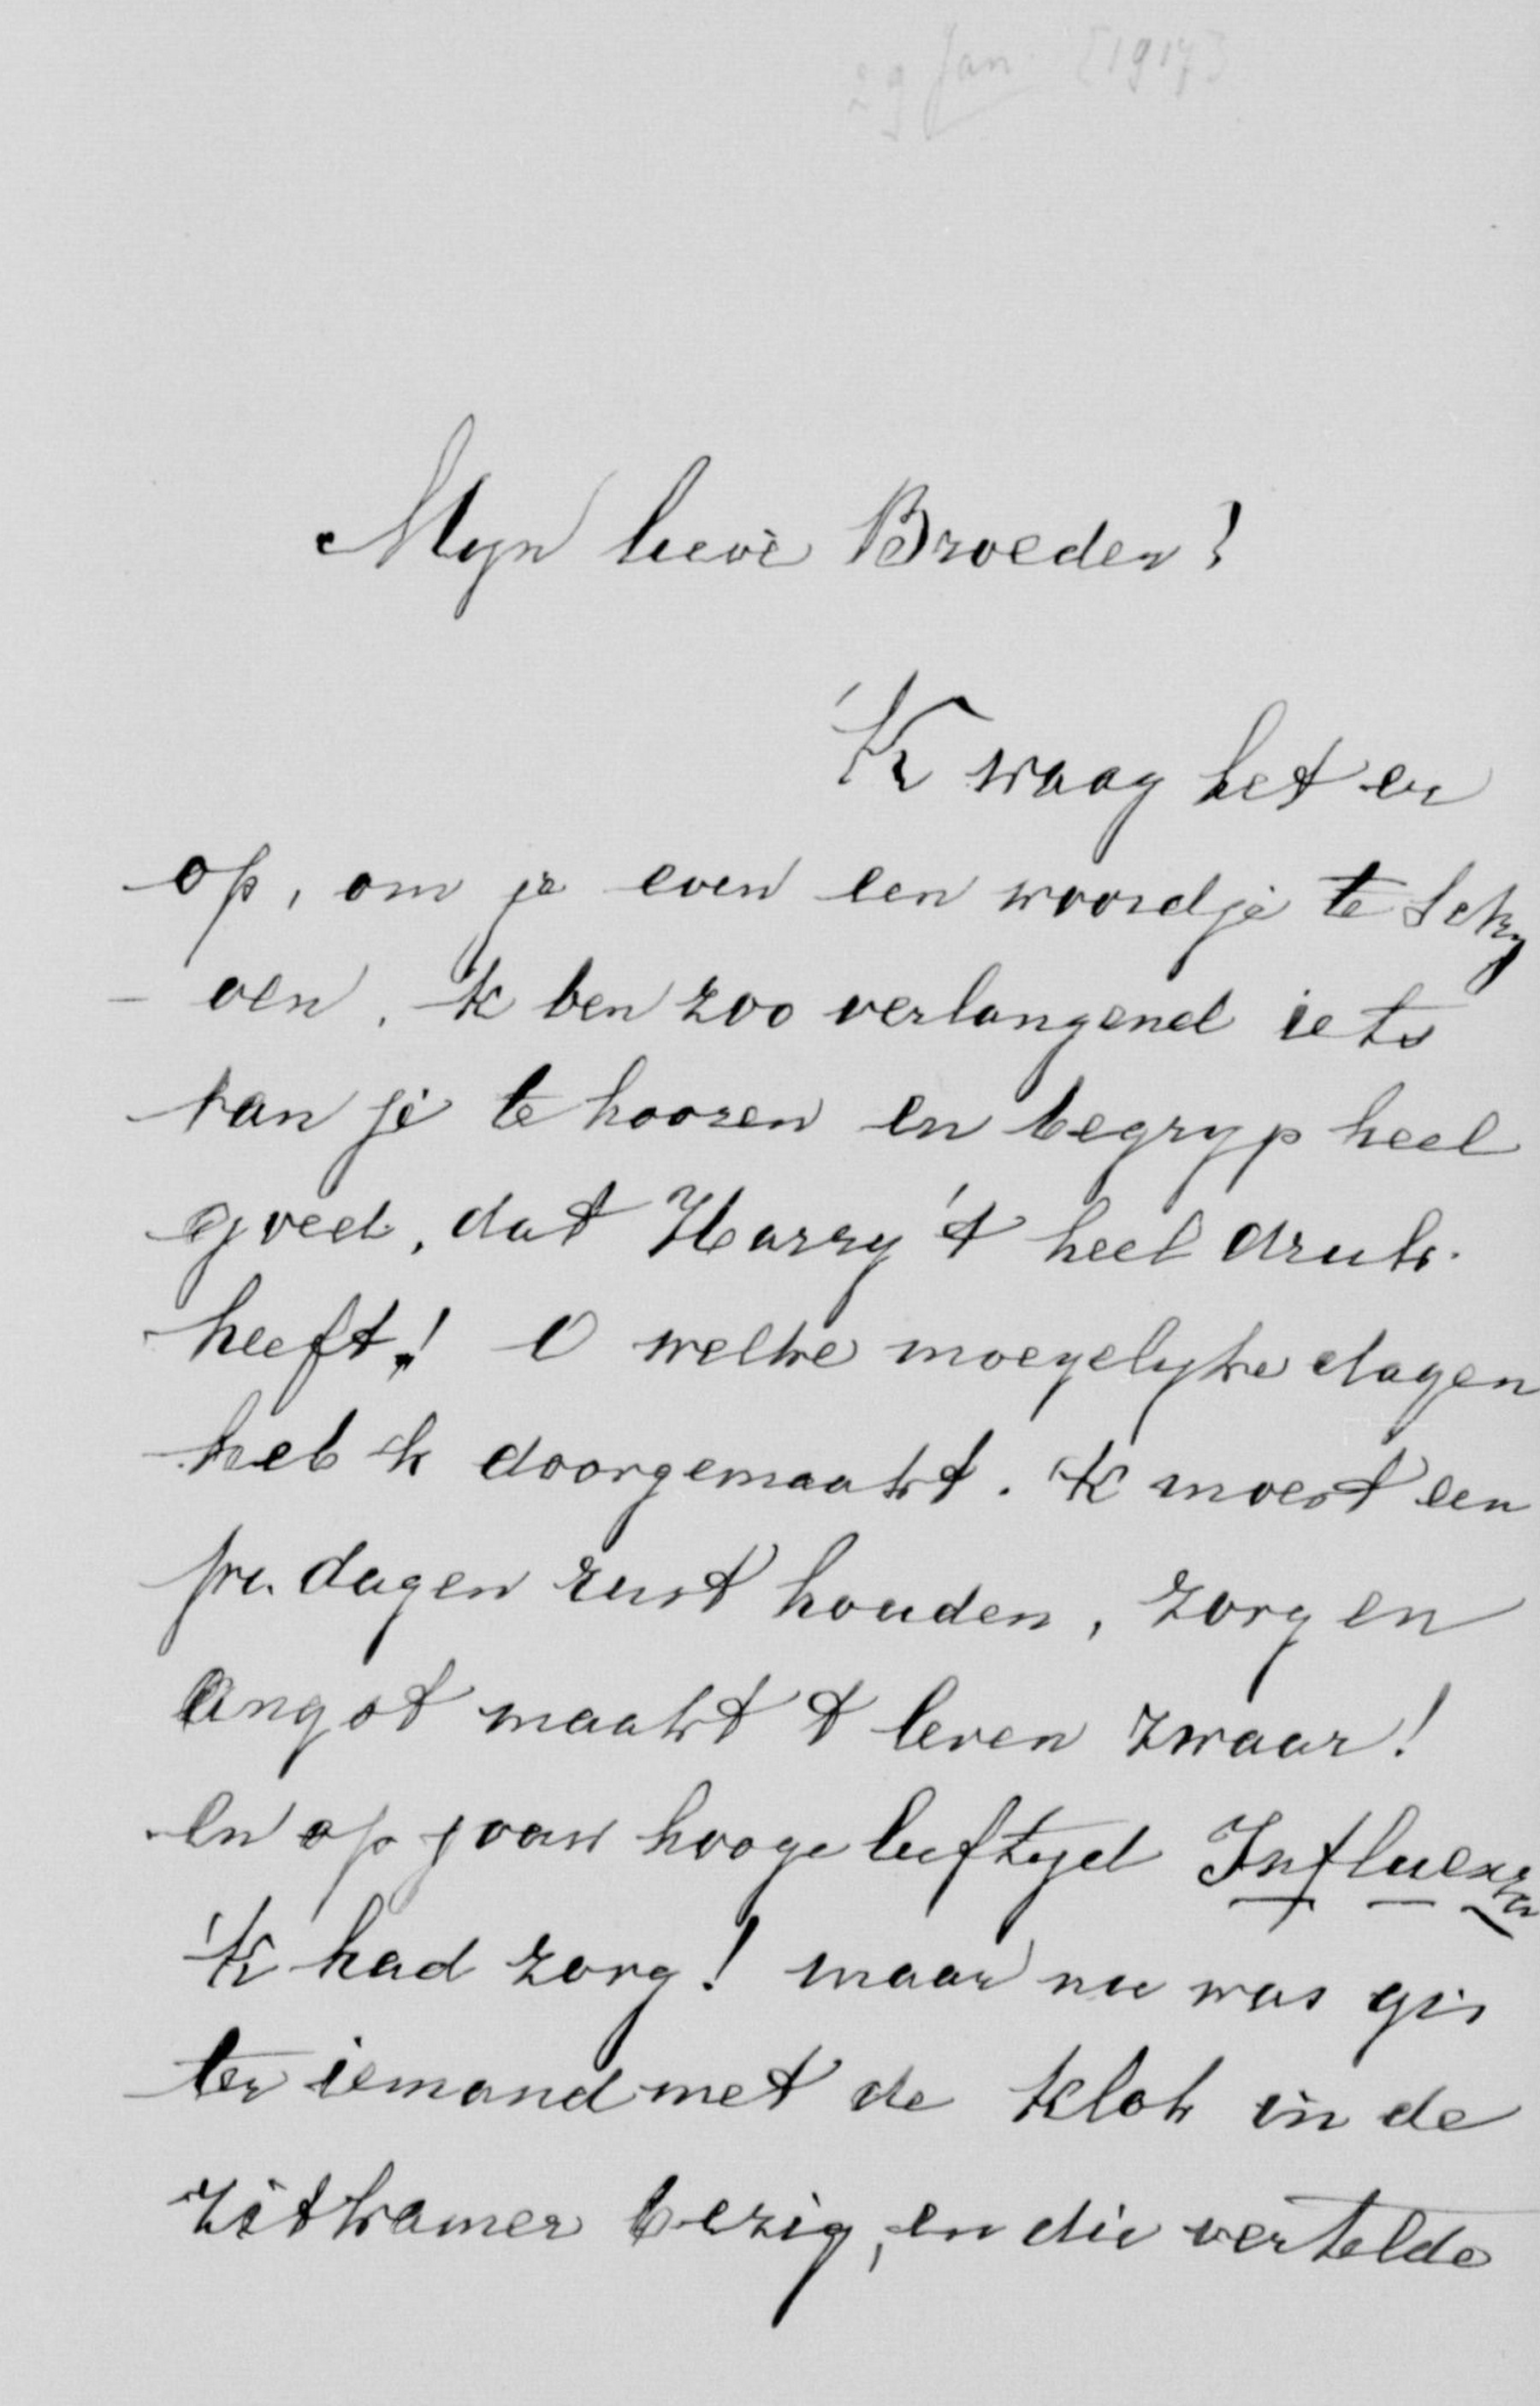 29 Jan [1917]
Myn lieve Broeder!
'K waag het er
op, om je even een woordje te schry
- ven. 'k ben zoo verlangend iets
van je te hooren en begryp heel
goed, dat Harry 't heel druk
heeft! O welke moeyelyke dagen
heb 'k doorgemaakt. 'K moest een
pr. dagen rust houden, zorg en
angst maakt 't leven zwaar!
en op jouw hooge leeftyd Influenza
'K had zorg! maar nu was gis
ter iemand met de klok in de
zitkamer bezig, en die vertelde